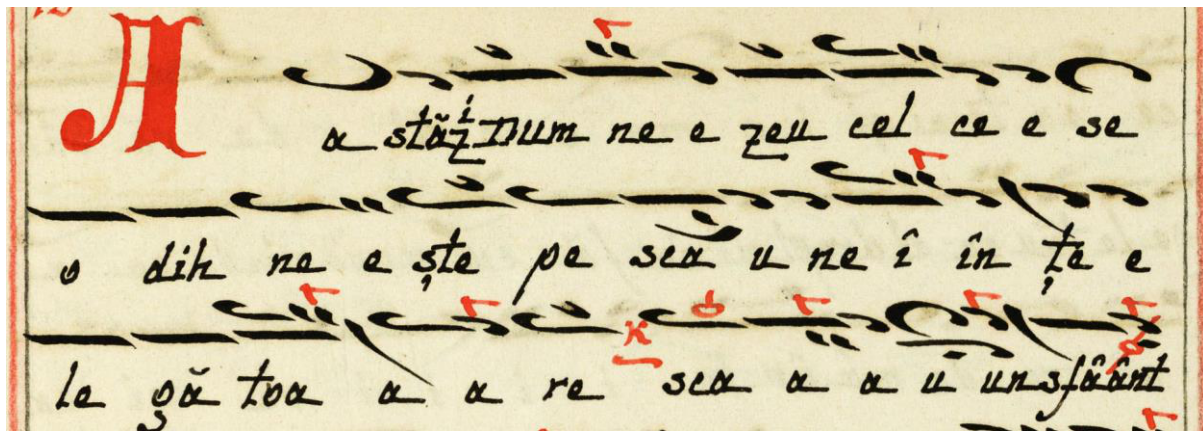 A a stăzi Dum ne e zeu cel ce e se
o dih ne e ște pe sca u ne î în țe e
le gă toa a a re sca a a u un sfâânt